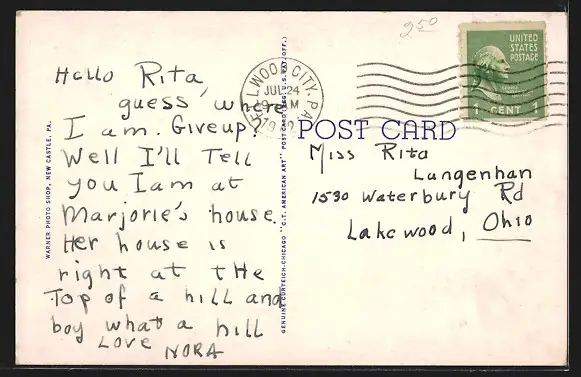 2.50
Hello Rita,
guess, where
I am. Giveup?
Well I'll Tell
you I am at
Marjorie's house.
Her house is
right at tHe
Top of a hill and
boy what a hill
Love NORA
WARNER PHOTO SHOP, NEW CASTLE, PA.
GENUINE CURTEICH-CHICAGO "C.T. AMERICAN ART" POST CARD (REG. U.S. PAT. OFF.)
ELLWOOD CITY, PA.
JUL 24
9 AM
POST CARD
UNITED
STATES
POSTAGE
1 CENT 1
Miss Rita
Langenhan
1590 Waterbury Rd
Lakewood, Ohio